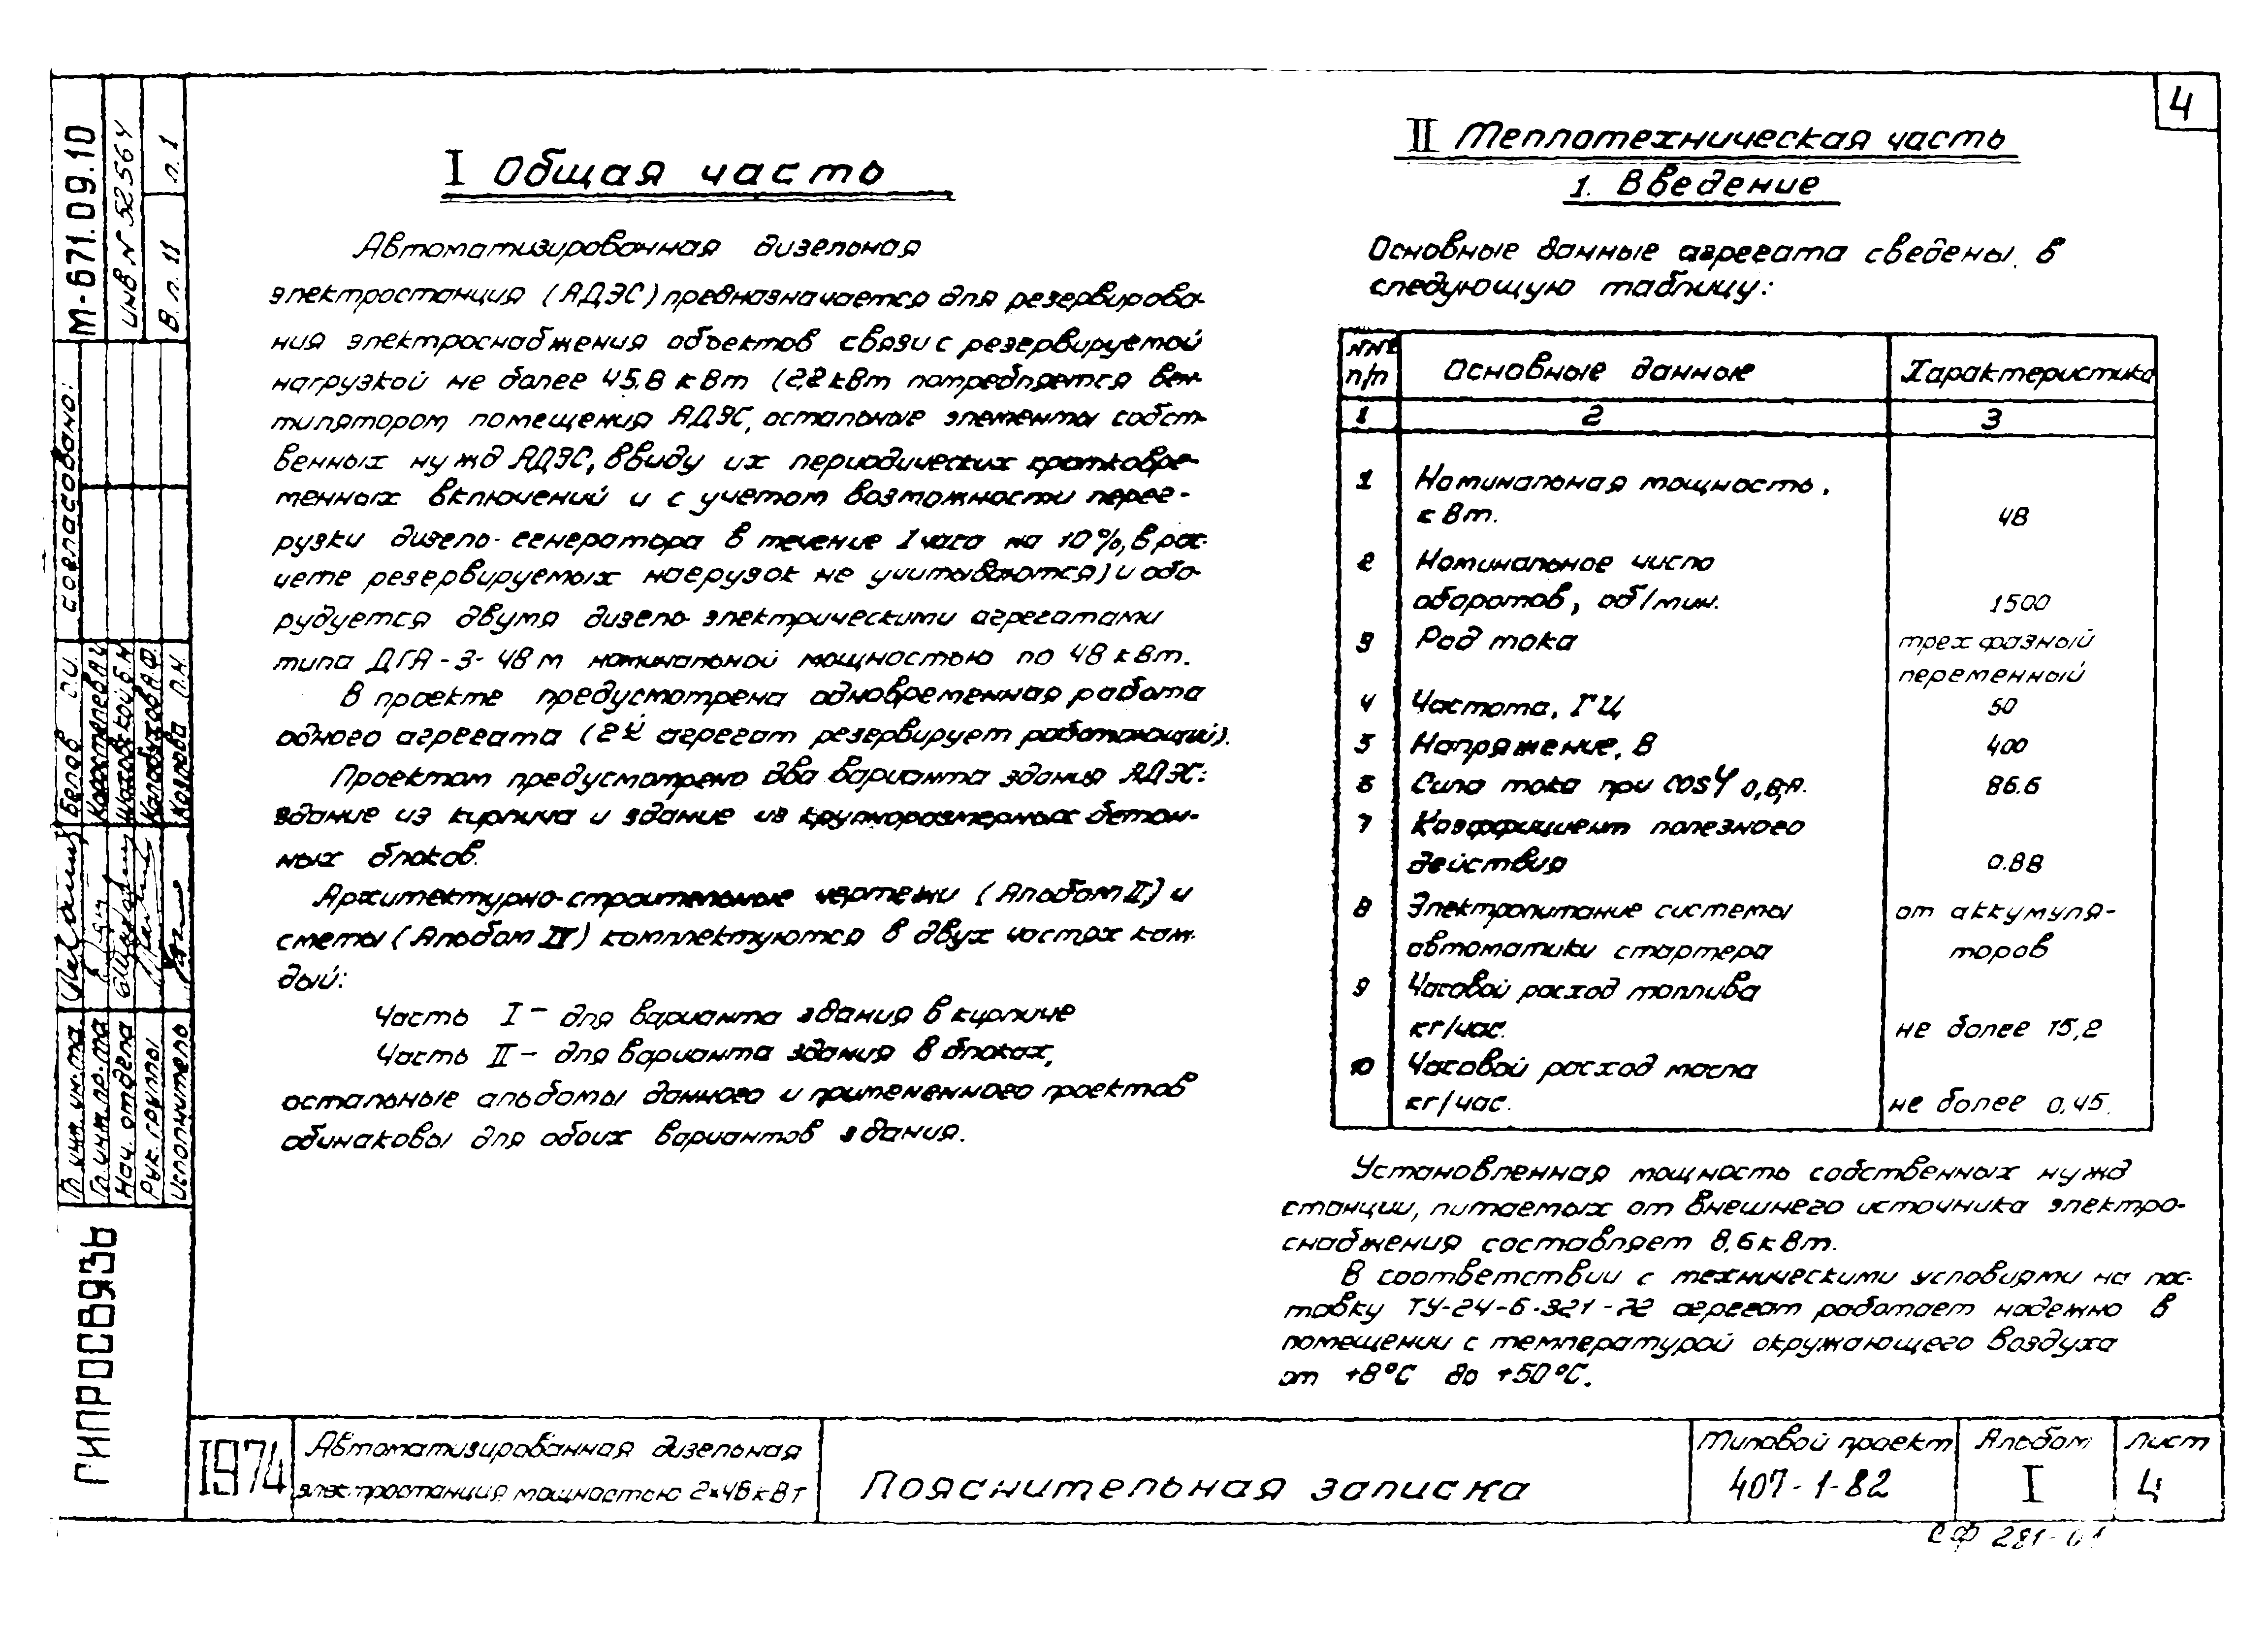 4
I Общая часть
Автоматизированная дизельная
электростанция (АДЭС) предназначается для резервирова-
ния электроснабжения объектов связи с резервируемой
нагрузкой не более 45,8 кВт (2,2 кВт потребляется вен-
тилятором помещения АДЭС, остальные элементы собст-
венных нужд АДЭС, ввиду их периодических кратковре-
менных включений и с учетом возможности перег-
рузки дизель-генератора в течение 1 часа на 10%, в рас-
чете резервируемых нагрузок не учитываются) и обо-
рудуется двумя дизель-электрическими агрегатами
типа ДГА-3-48м номинальной мощностью по 48 кВт.
В проекте предусмотрена одновременная работа
одного агрегата (2й агрегат резервирует работающий).
Проектом предусмотрено два варианта здания АДЭС:
здание из кирпича и здание из крупноразмерных бетон-
ных блоков.
Архитектурно-строительные чертежи (Альбом II) и
сметы (Альбом IV) комплектуются в двух частях каж-
дый:
Часть I – для варианта здания в кирпиче
Часть II – для варианта здания в блоках,
остальные альбомы данного и примененного проектов
одинаковы для обоих вариантов здания.
II Теплотехническая часть
1. Введение
Основные данные агрегата сведены в
следующую таблицу:
№№ п/п Основные данные Характеристика
1 2 3
1 Номинальная мощность,
кВт. 48
2 Номинальное число
оборотов, об/мин. 1500
3 Род тока трехфазный
переменный
4 Частота, ГЦ 50
5 Напряжение, В 400
6 Сила тока при cosφ 0,8,А. 86.6
7 Коэффициент полезного
действия 0.88
8 Электропитание системы от аккумуля-
автоматики стартера торов
9 Часовой расход топлива
кг/час. не более 15,2
10 Часовой расход масла
кг/час. не более 0,45.
Установленная мощность собственных нужд
станции, питаемых от внешнего источника электро-
снабжения составляет 8,6 кВт.
В соответствии с техническими условиями на пос-
тавку ТУ-24-6-321-72 агрегат работает надежно в
помещении с температурой окружающего воздуха
от +8°С до +50°С.
М-671.09.10
инв N 52564
В.п.11 п.1
согласовано:
Гл. инж. ин-та Белов
Гл. инж. пр-та
Нач. отдела
Рук. группы
Исполнитель Козлова Л.Н.
ГИПРОСВЯЗЬ
1974
Автоматизированная дизельная
электростанция мощностью 2×48 кВт
Пояснительная записка
Типовой проект
407-1-82
Альбом
I
Лист
4
СФ 281-01